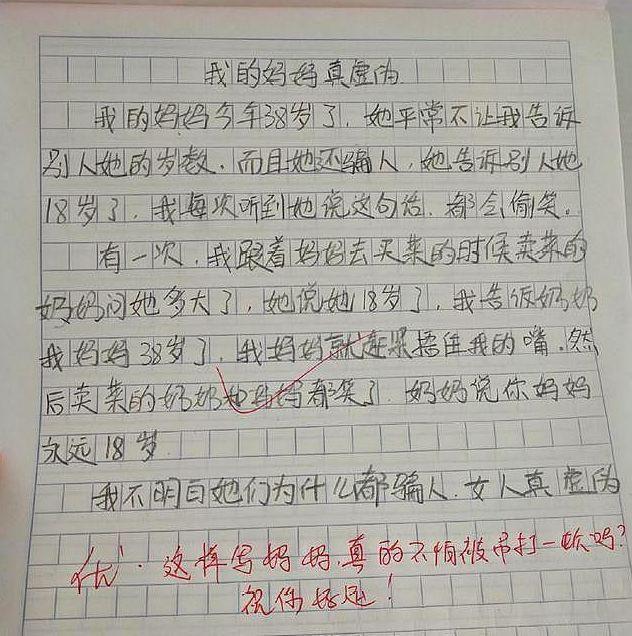 我的妈妈真虚伪
我的妈妈今年38岁了，她平常不让我告诉
别人她的岁数，而且她还骗人，她告诉别人她
18岁了，我每次听到她说这句话，都会偷笑。
有一次，我跟着妈妈去买菜的时候卖菜的
奶奶问她多大了，她说她18岁了，我告饭奶奶
我妈妈38岁了，我妈妈就赶果捂住我的嘴，然
后卖菜的奶奶和妈妈都笑了，奶奶说你妈妈
永远18岁
我不明白她们为什么都骗人，女人真虚伪
优、这样写妈妈真的不怕被吊打一顿吗？
祝你好运！